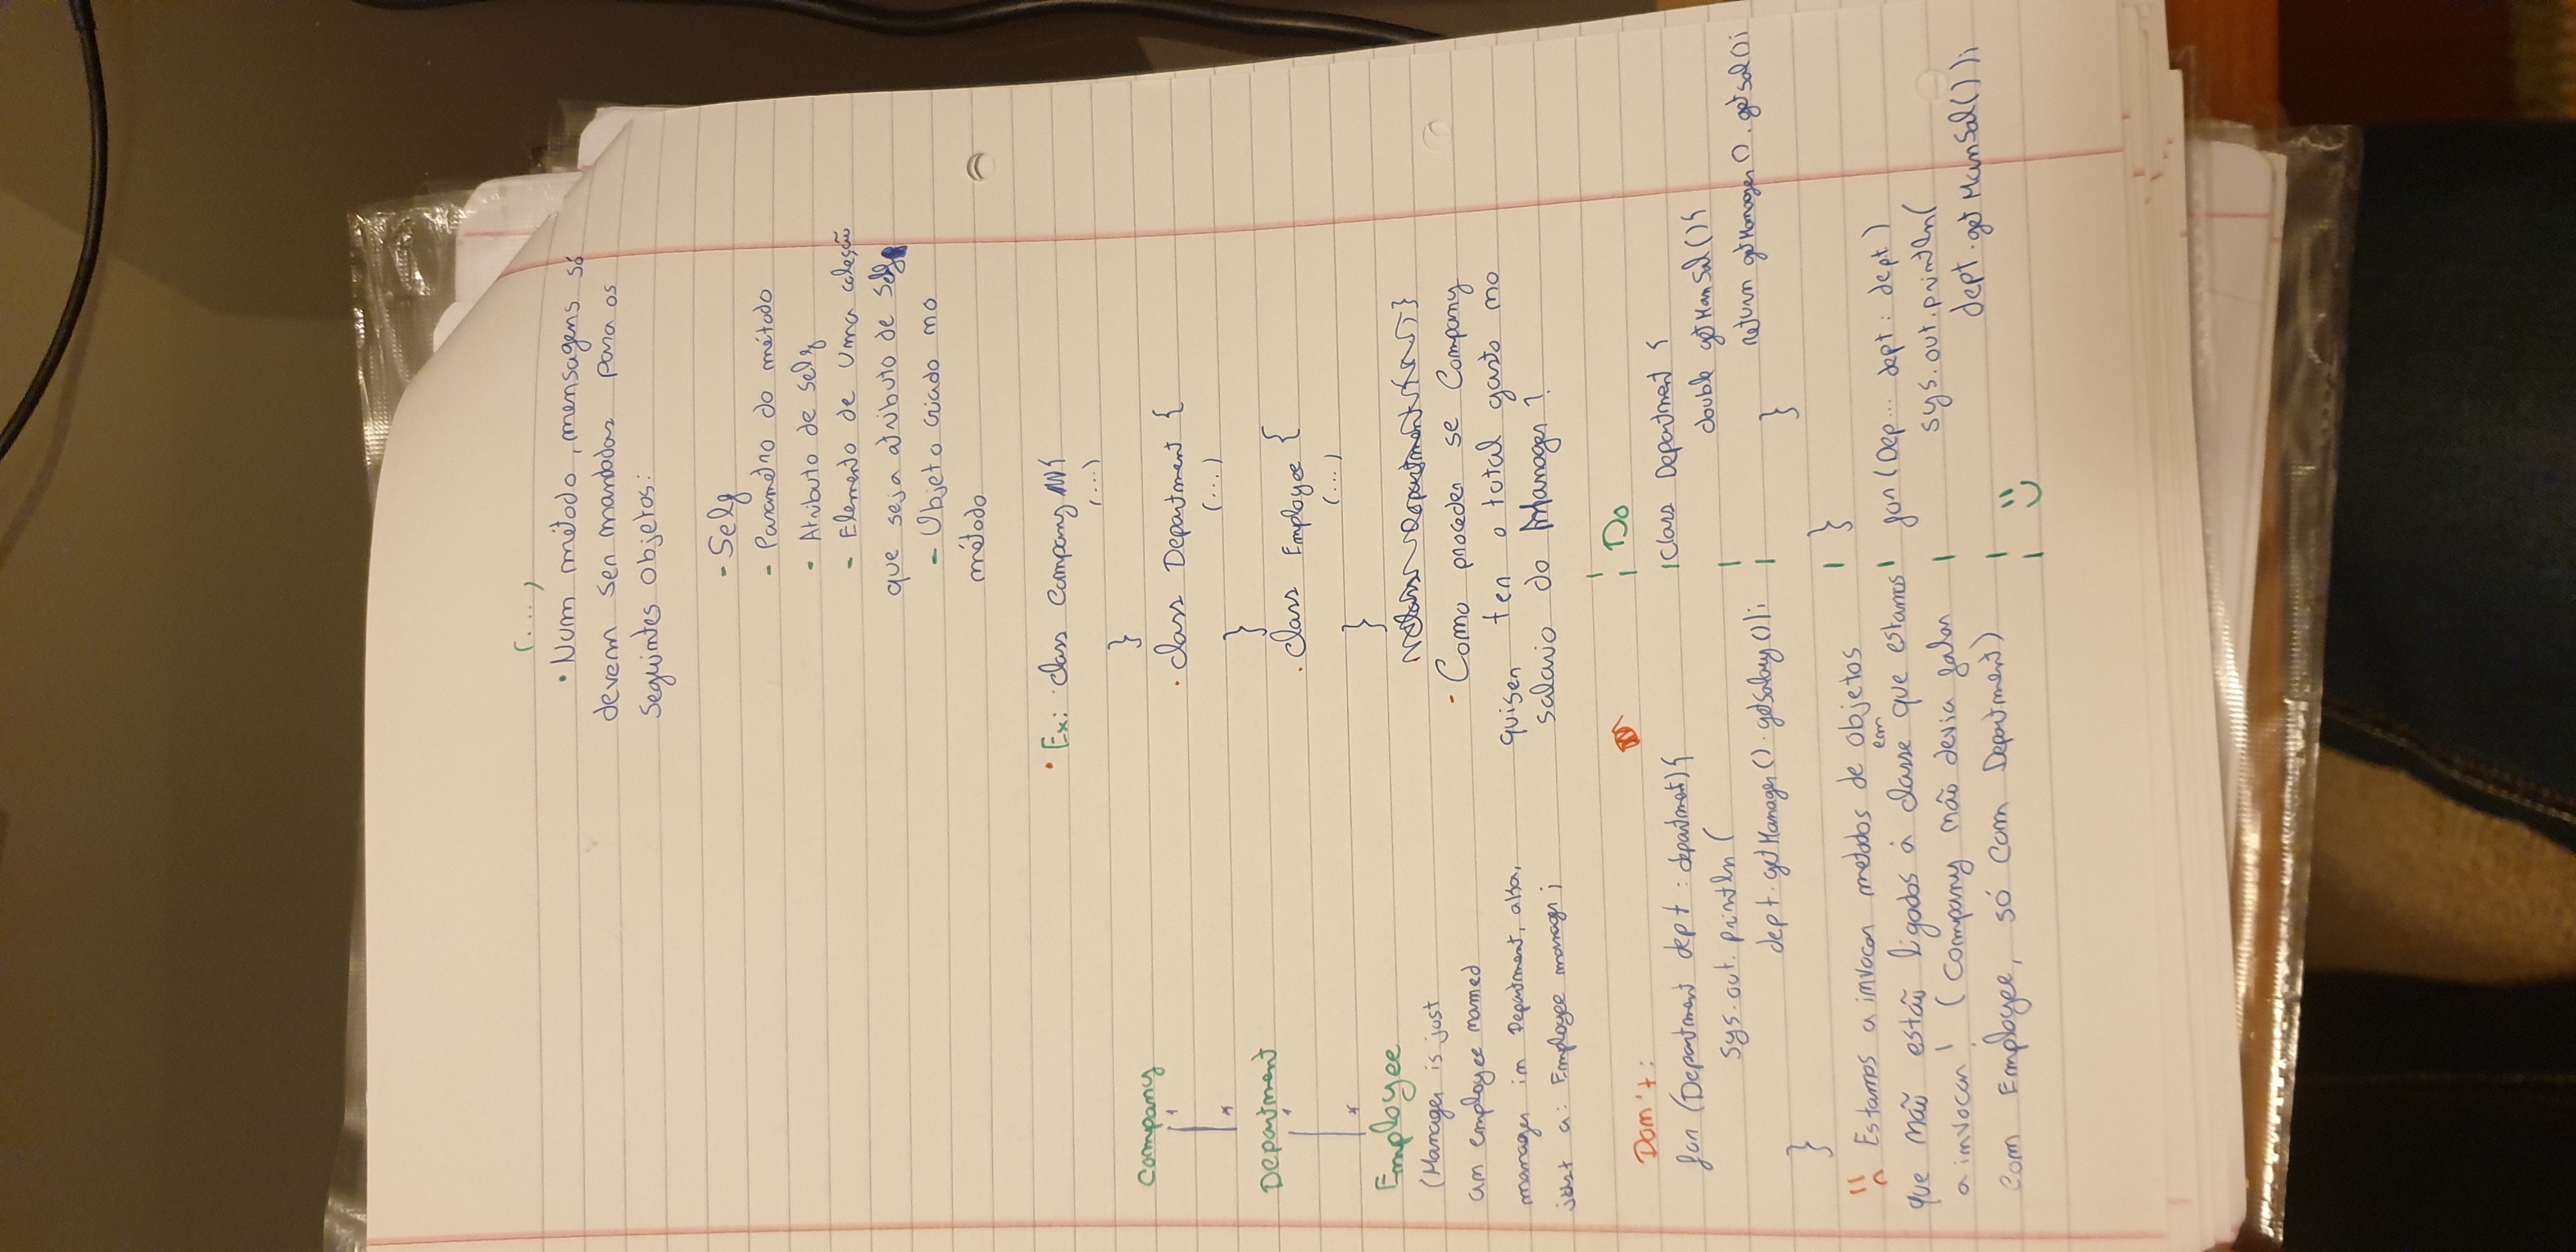 (...)
• Num método, mensagens só
devem ser mandadas para os
seguintes objetos:
- Self
- Parametro do método
- Atributo de self
- Elemento de uma coleção
que seja atributo de self
- Objeto criado no
método
• Ex: class Company {
(...)
}
Company
1
*
• class Department {
(...)
}
Department
1
*
• class Employee {
(...)
}
Employee
(Manager is just
an employee named
manager in Department, aka,
just a: Employee manager;
- Como proceder se Company
quiser ter o total gasto no
salario do Manager?
Don't:
for (Department dept : department){
sys.out.println(
dept.getManager().getSalary());
}
Estamos a invocar metodos de objetos
que não estão ligados à classe em que estamos
a invocar! (Company não devia falar
com Employee, só com Department)
Do
class Department {
double getManSal(){
return getManager().getSal();
}
}
for (Dep... dept : dept)
sys.out.println(
dept.getManSal());